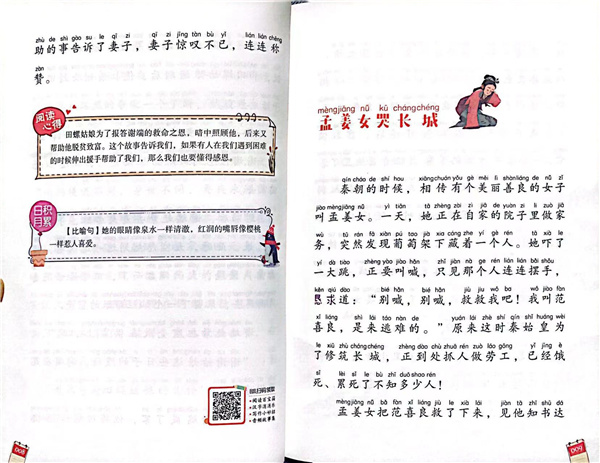 zhù de shì gào su le qī zi qī zi jīng tàn bù yǐ lián lián chēng
助的事告诉了妻子，妻子惊叹不已，连连称
zàn
赞。
阅读心得
田螺姑娘为了报答谢端的救命之恩，暗中照顾他，后来又
帮助他脱贫致富。这个故事告诉我们，如果有人在我们遇到困难
的时候伸出援手帮助了我们，那么我们也要懂得感恩。
日积月累
【比喻句】她的眼睛像泉水一样清澈，红润的嘴唇像樱桃
一样惹人喜爱。
·阅读百宝箱
·汉字连连看
·写作小妙招
·音频故事集
008
mèng jiāng nǚ kū cháng chéng
孟姜女哭长城
qín cháo de shí hou xiāng chuán yǒu gè měi lì shàn liáng de nǚ zǐ
秦朝的时候，相传有个美丽善良的女子
jiào mèng jiāng nǚ yì tiān tā zhèng zài zì jiā de yuàn zi lǐ zuò jiā
叫孟姜女。一天，她正在自家的院子里做家
wù tū rán fā xiàn pú tao jià xià cáng zhe yí gè rén tā xià le
务，突然发现葡萄架下藏着一个人。她吓了
yí dà tiào zhèng yào hǎn jiào zhǐ jiàn nà ge rén lián lián bǎi shǒu
一大跳，正要叫喊，只见那个人连连摆手，
kěn qiú dào bié hǎn bié hǎn jiù jiu wǒ ba wǒ jiào fàn
恳求道：“别喊，别喊，救救我吧！我叫范
xǐ liáng shì lái táo nàn de yuán lái zhè shí qín shǐ huáng wèi
喜良，是来逃难的。”原来这时秦始皇为
le xiū zhù cháng chéng zhèng dào chù zhuā rén zuò láo gōng yǐ jīng è
了修筑长城，正到处抓人做劳工，已经饿
sǐ lèi sǐ le bù zhī duō shao rén
死、累死了不知多少人！
mèng jiāng nǚ bǎ fàn xǐ liáng jiù le xià lái jiàn tā zhī shū dá
孟姜女把范喜良救了下来，见他知书达
009